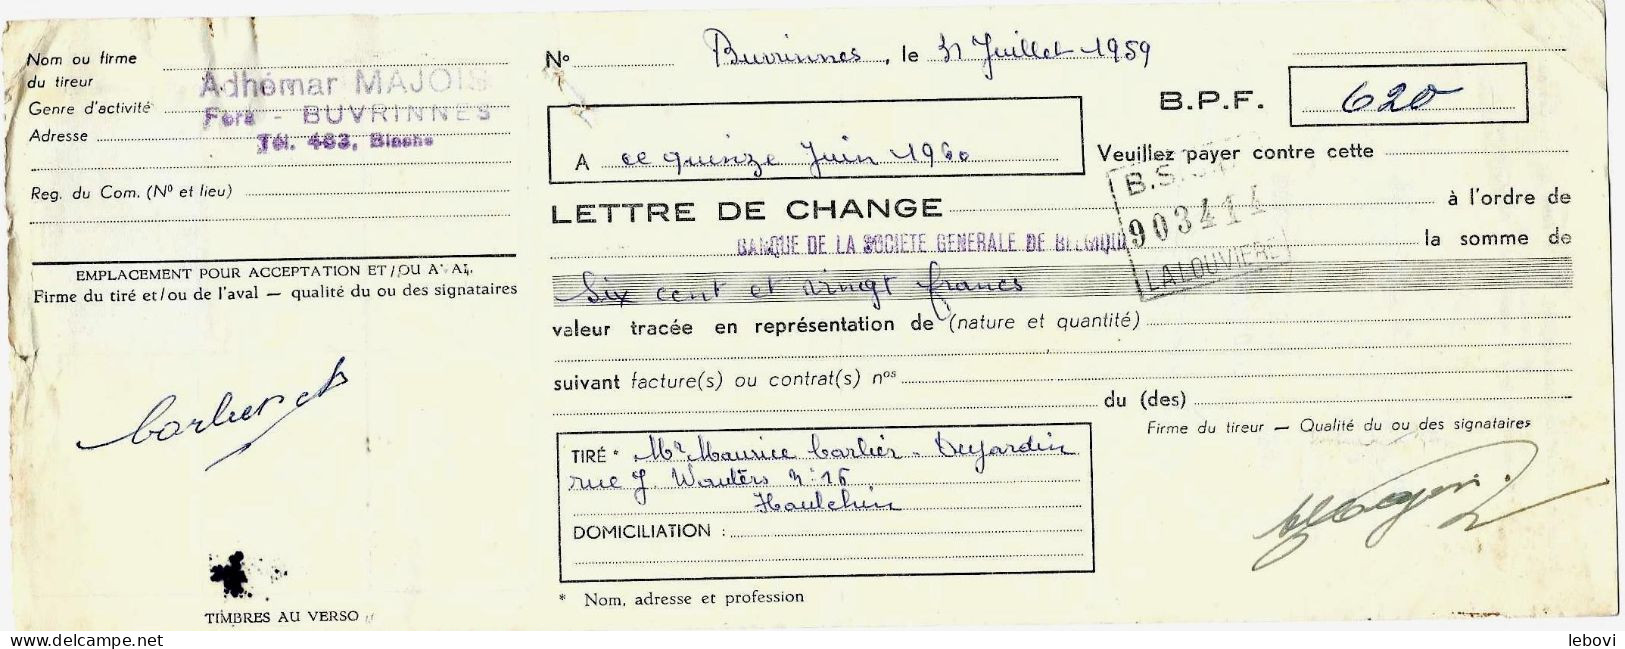 Nom ou firme
du tireur
Genre d'activité
Adresse
Adhémar MAJOIS
Fers - BUVRINNES
Tél. 483, Binche
Reg. du Com. (Nº et lieu)
EMPLACEMENT POUR ACCEPTATION ET/OU AVAL
Firme du tiré et/ou de l'aval — qualité du ou des signataires
TIMBRES AU VERSO
Nº Buvrinnes, le 31 Juillet 1959
B.P.F. 620
A ce quinze Juin 1960
Veuillez payer contre cette
LETTRE DE CHANGE à l'ordre de
BANQUE DE LA SOCIETE GENERALE DE BELGIQUE la somme de
903414
LA LOUVIERE
Six cent et vingt francs
valeur tracée en représentation de (nature et quantité)
suivant facture(s) ou contrat(s) nos
du (des)
Firme du tireur — Qualité du ou des signataires
TIRÉ * Mr Maurice Carlier - Dujardin
rue J. Wauters Nº 16
Haulchin
DOMICILIATION :
* Nom, adresse et profession
lebovi